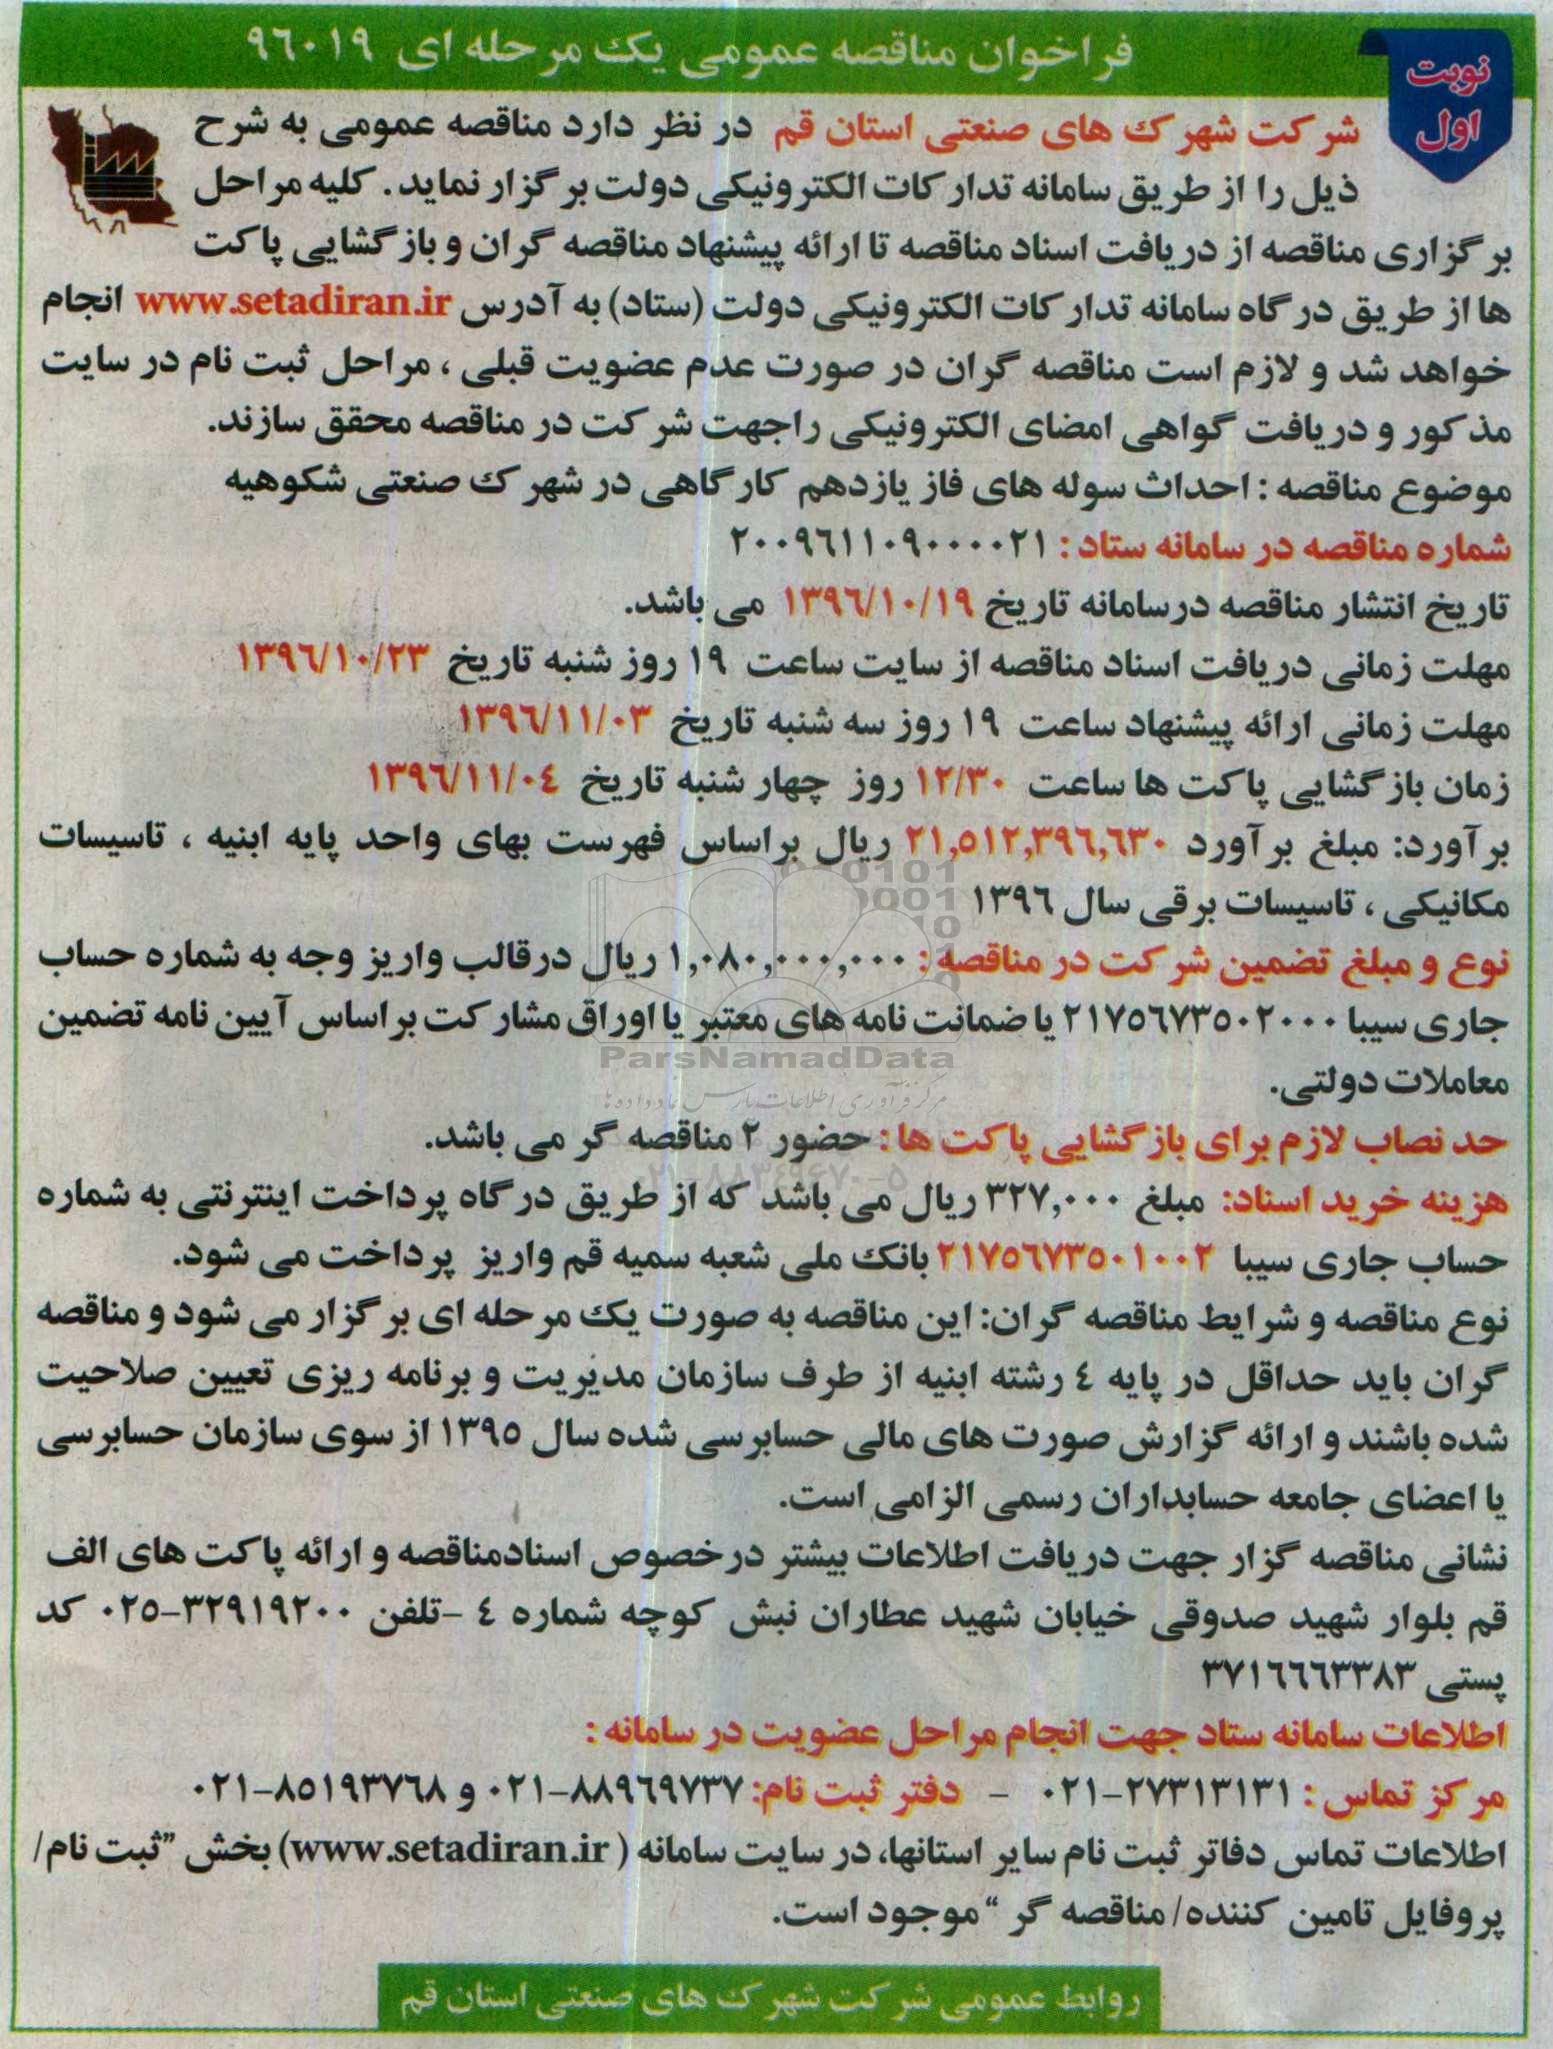 فراخوان مناقصه عمومی یک مرحله ای ۹۶۰۱۹
نوبت
اول
شرکت شهرک های صنعتی استان قم در نظر دارد مناقصه عمومی به شرح
ذیل را از طریق سامانه تدارکات الکترونیکی دولت برگزار نماید. کلیه مراحل
برگزاری مناقصه از دریافت اسناد مناقصه تا ارائه پیشنهاد مناقصه گران و بازگشایی پاکت
ها از طریق درگاه سامانه تدارکات الکترونیکی دولت (ستاد) به آدرس www.setadiran.ir انجام
خواهد شد و لازم است مناقصه گران در صورت عدم عضویت قبلی ، مراحل ثبت نام در سایت
مذکور و دریافت گواهی امضای الکترونیکی راجهت شرکت در مناقصه محقق سازند.
موضوع مناقصه : احداث سوله های فاز یازدهم کارگاهی در شهرک صنعتی شکوهیه
شماره مناقصه در سامانه ستاد : ۲۰۰۹۶۱۱۰۹۰۰۰۰۲۱
تاریخ انتشار مناقصه درسامانه تاریخ ۱۳۹۶/۱۰/۱۹ می باشد.
مهلت زمانی دریافت اسناد مناقصه از سایت ساعت ۱۹ روز شنبه تاریخ ۱۳۹۶/۱۰/۲۳
مهلت زمانی ارائه پیشنهاد ساعت ۱۹ روز سه شنبه تاریخ ۱۳۹۶/۱۱/۰۳
زمان بازگشایی پاکت ها ساعت ۱۲/۳۰ روز چهار شنبه تاریخ ۱۳۹۶/۱۱/۰۴
برآورد: مبلغ برآورد ۲۱,۵۱۲,۳۹۶,۶۳۰ ریال براساس فهرست بهای واحد پایه ابنیه ، تاسیسات
مکانیکی ، تاسیسات برقی سال ۱۳۹۶
نوع و مبلغ تضمین شرکت در مناقصه : ۱,۰۸۰,۰۰۰,۰۰۰ ریال درقالب واریز وجه به شماره حساب
جاری سیبا ۲۱۷۵۶۷۳۵۰۲۰۰۰ یا ضمانت نامه های معتبر یا اوراق مشارکت براساس آیین نامه تضمین
معاملات دولتی.
ParsNamadData
مرکز فرآوری اطلاعات پارس نماد داده ها
حد نصاب لازم برای بازگشایی پاکت ها : حضور ۲ مناقصه گر می باشد.
۰۲۱-۸۸۳۴۹۶۷۰-۵
هزینه خرید اسناد: مبلغ ۳۲۷,۰۰۰ ریال می باشد که از طریق درگاه پرداخت اینترنتی به شماره
حساب جاری سیبا ۲۱۷۵۶۷۳۵۰۱۰۰۲ بانک ملی شعبه سمیه قم واریز پرداخت می شود.
نوع مناقصه و شرایط مناقصه گران: این مناقصه به صورت یک مرحله ای برگزار می شود و مناقصه
گران باید حداقل در پایه ۴ رشته ابنیه از طرف سازمان مدیریت و برنامه ریزی تعیین صلاحیت
شده باشند و ارائه گزارش صورت های مالی حسابرسی شده سال ۱۳۹۵ از سوی سازمان حسابرسی
یا اعضای جامعه حسابداران رسمی الزامی است.
نشانی مناقصه گزار جهت دریافت اطلاعات بیشتر درخصوص اسنادمناقصه و ارائه پاکت های الف
قم بلوار شهید صدوقی خیابان شهید عطاران نبش کوچه شماره ۴ -تلفن ۳۲۹۱۹۲۰۰-۰۲۵ کد
پستی ۳۷۱۶۶۶۳۳۸۳
اطلاعات سامانه ستاد جهت انجام مراحل عضویت در سامانه :
مرکز تماس : ۲۷۳۱۳۱۳۱-۰۲۱ - دفتر ثبت نام: ۸۸۹۶۹۷۳۷-۰۲۱ و ۸۵۱۹۳۷۶۸-۰۲۱
اطلاعات تماس دفاتر ثبت نام سایر استانها، در سایت سامانه ( www.setadiran.ir) بخش "ثبت نام/
پروفایل تامین کننده/ مناقصه گر " موجود است.
روابط عمومی شرکت شهرک های صنعتی استان قم